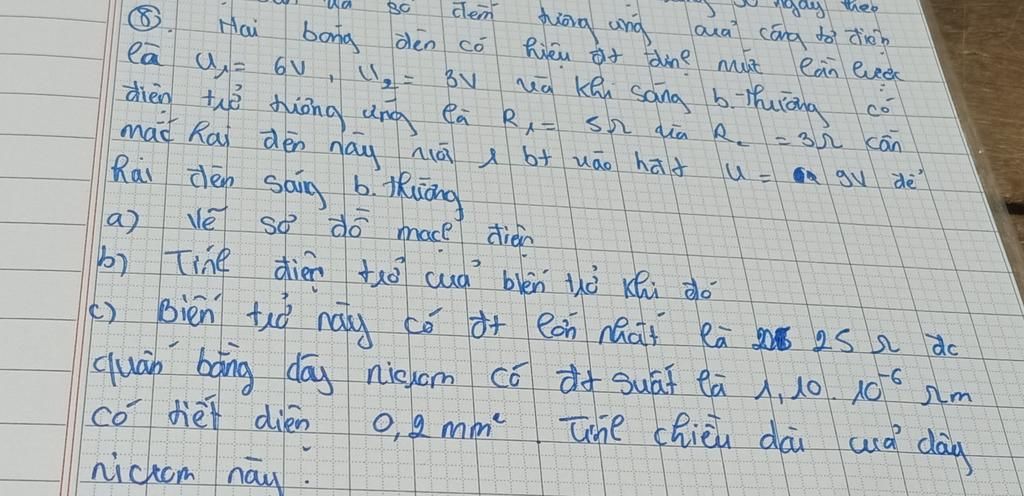 và số đếm tương ứng quả công tơ điện
⑧. Hai bóng đèn có hiệu đt định mức lần lượt
là U₁ = 6V, U₂ = 3V và khi sáng b. thường có
điện trở tương ứng là R₁ = 5Ω và R₂ = 3Ω cần
mắc hai đèn này với 1 bt vào hđt U = 9V để
hai đèn sáng b. thường
a) Vẽ sơ đồ mạch điện
b) Tính điện trở của biến trở khi đó
c) Biến trở này có đt lớn nhất là 25 Ω đc
quấn bằng dây nicrom có đt suất là 1,10.10⁻⁶ Ωm
có tiết diện 0,2 mm² Tính chiều dài của dây
nicrom này.